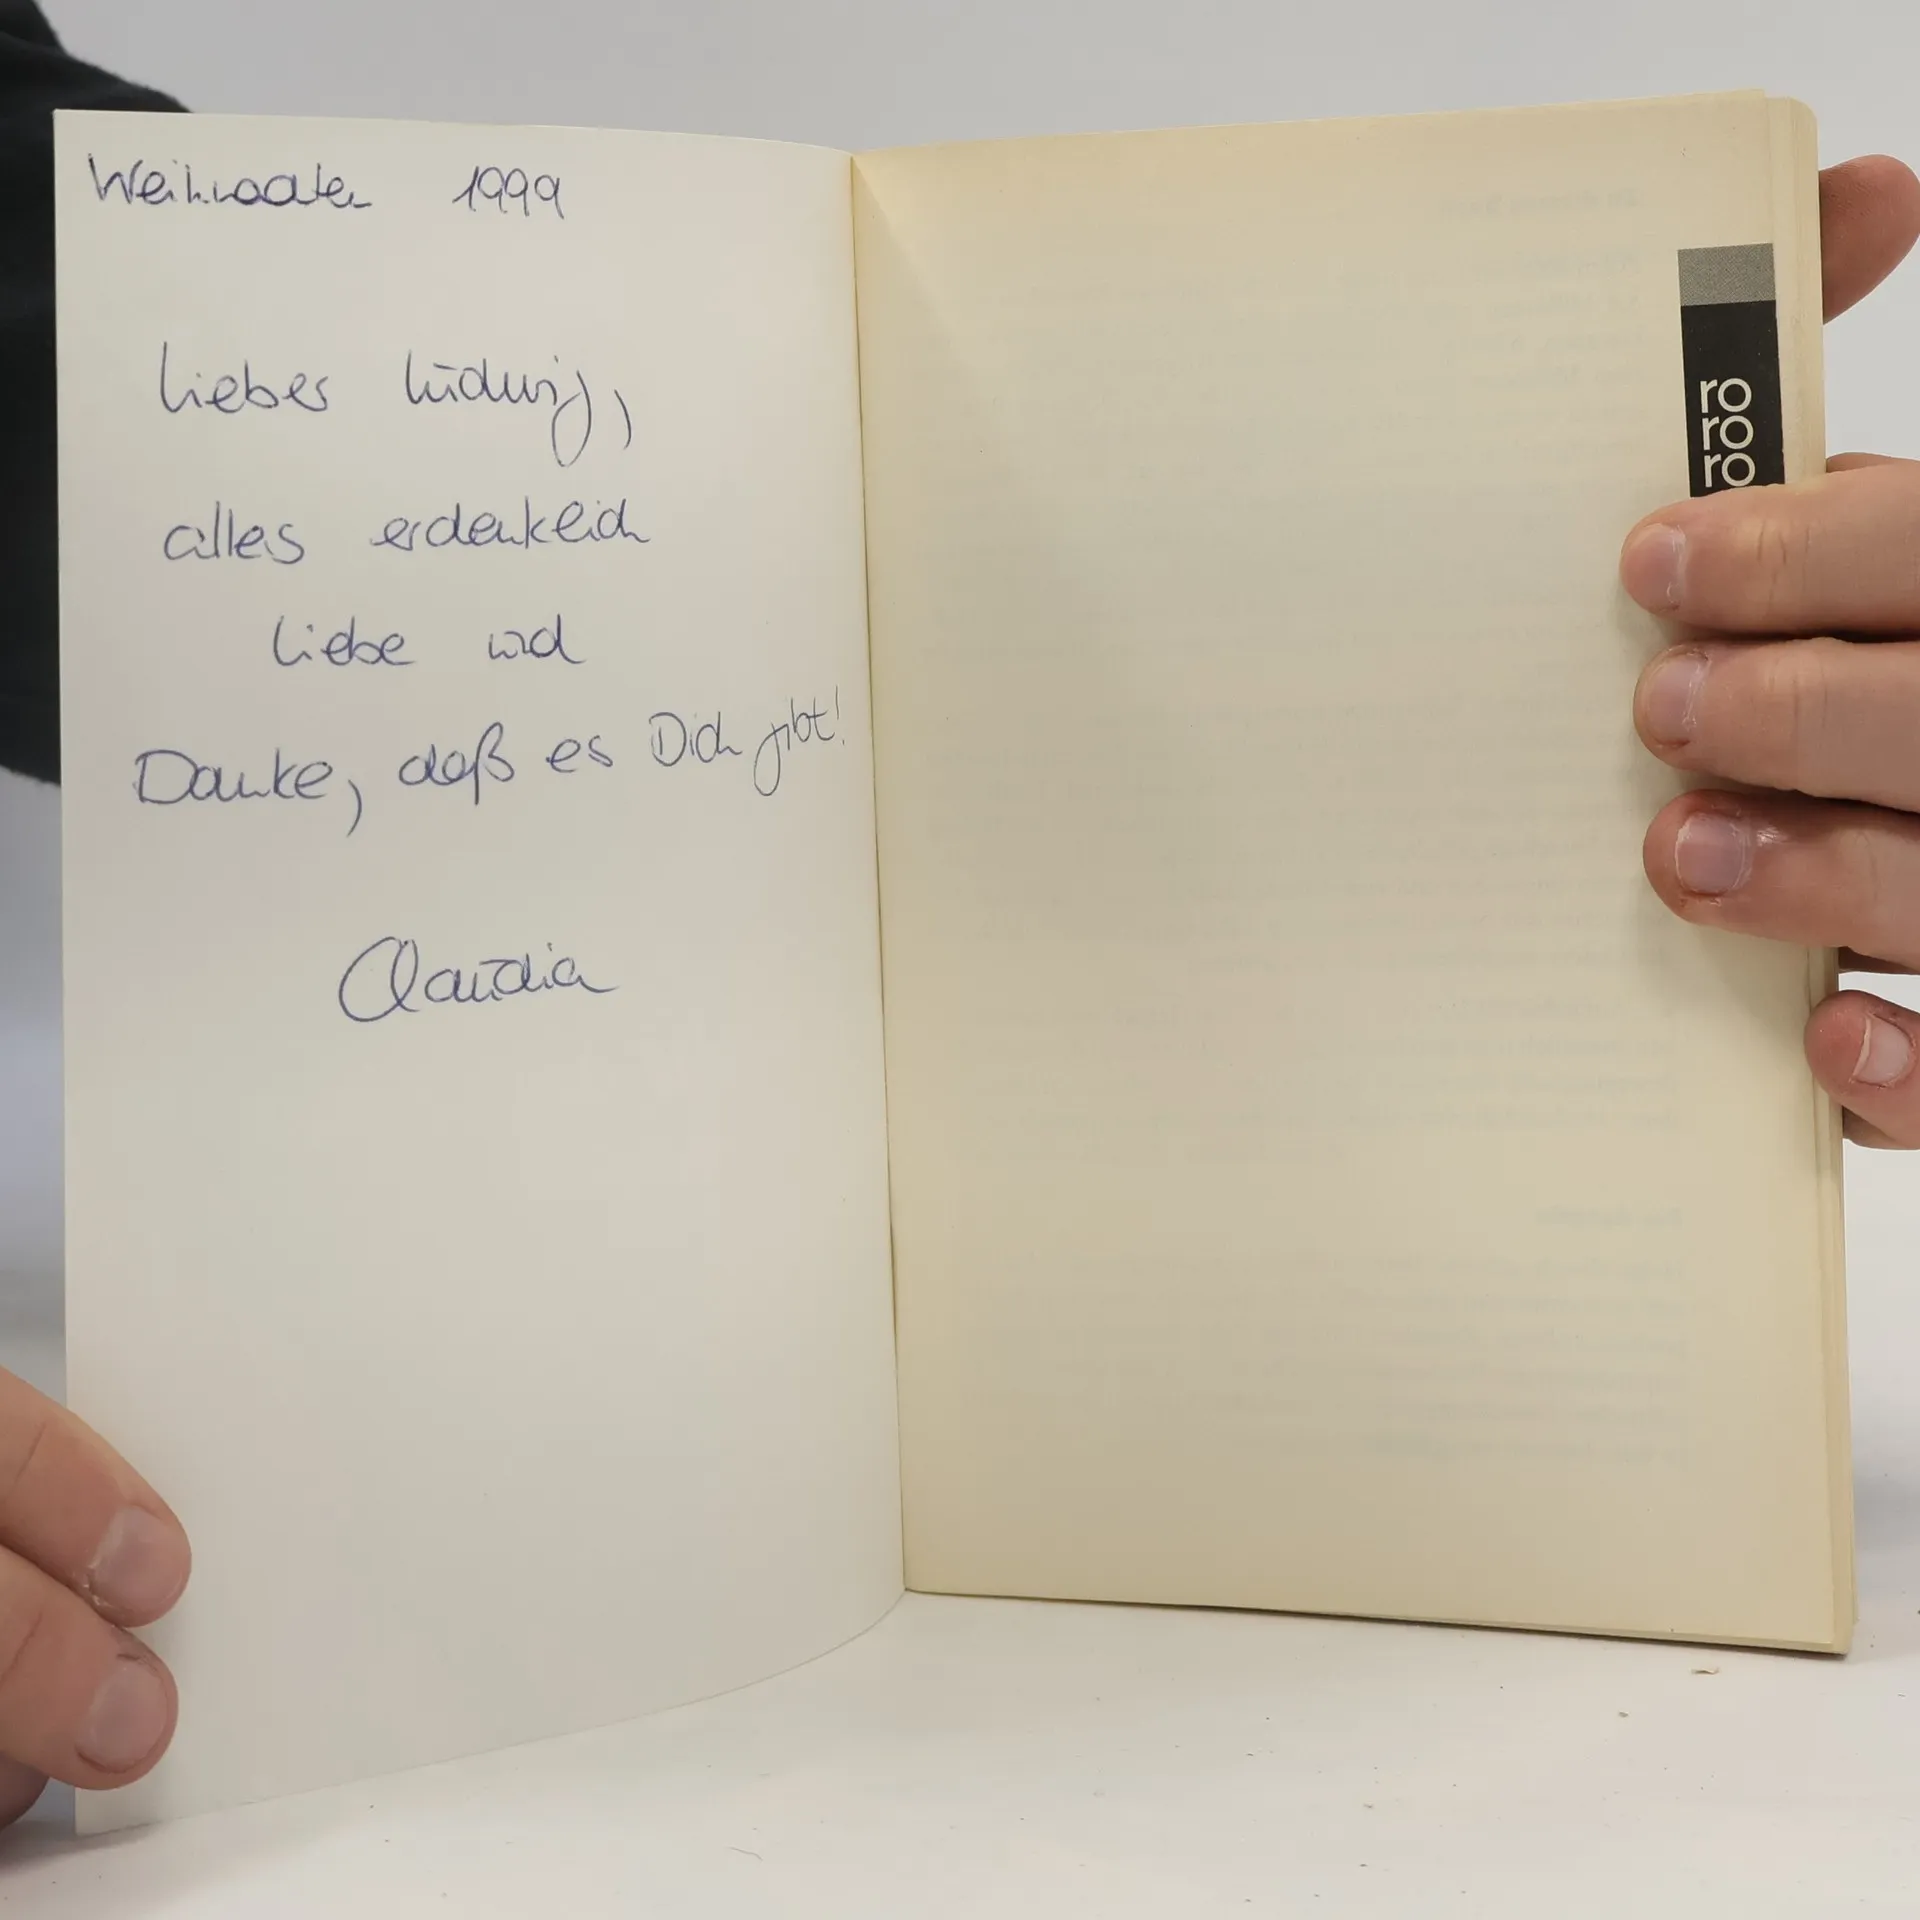 Weihnachten 1999
Lieber Ludwig,
alles erdenklich
Liebe und
Danke, daß es Dich gibt!
Claudia
ro
ro
ro